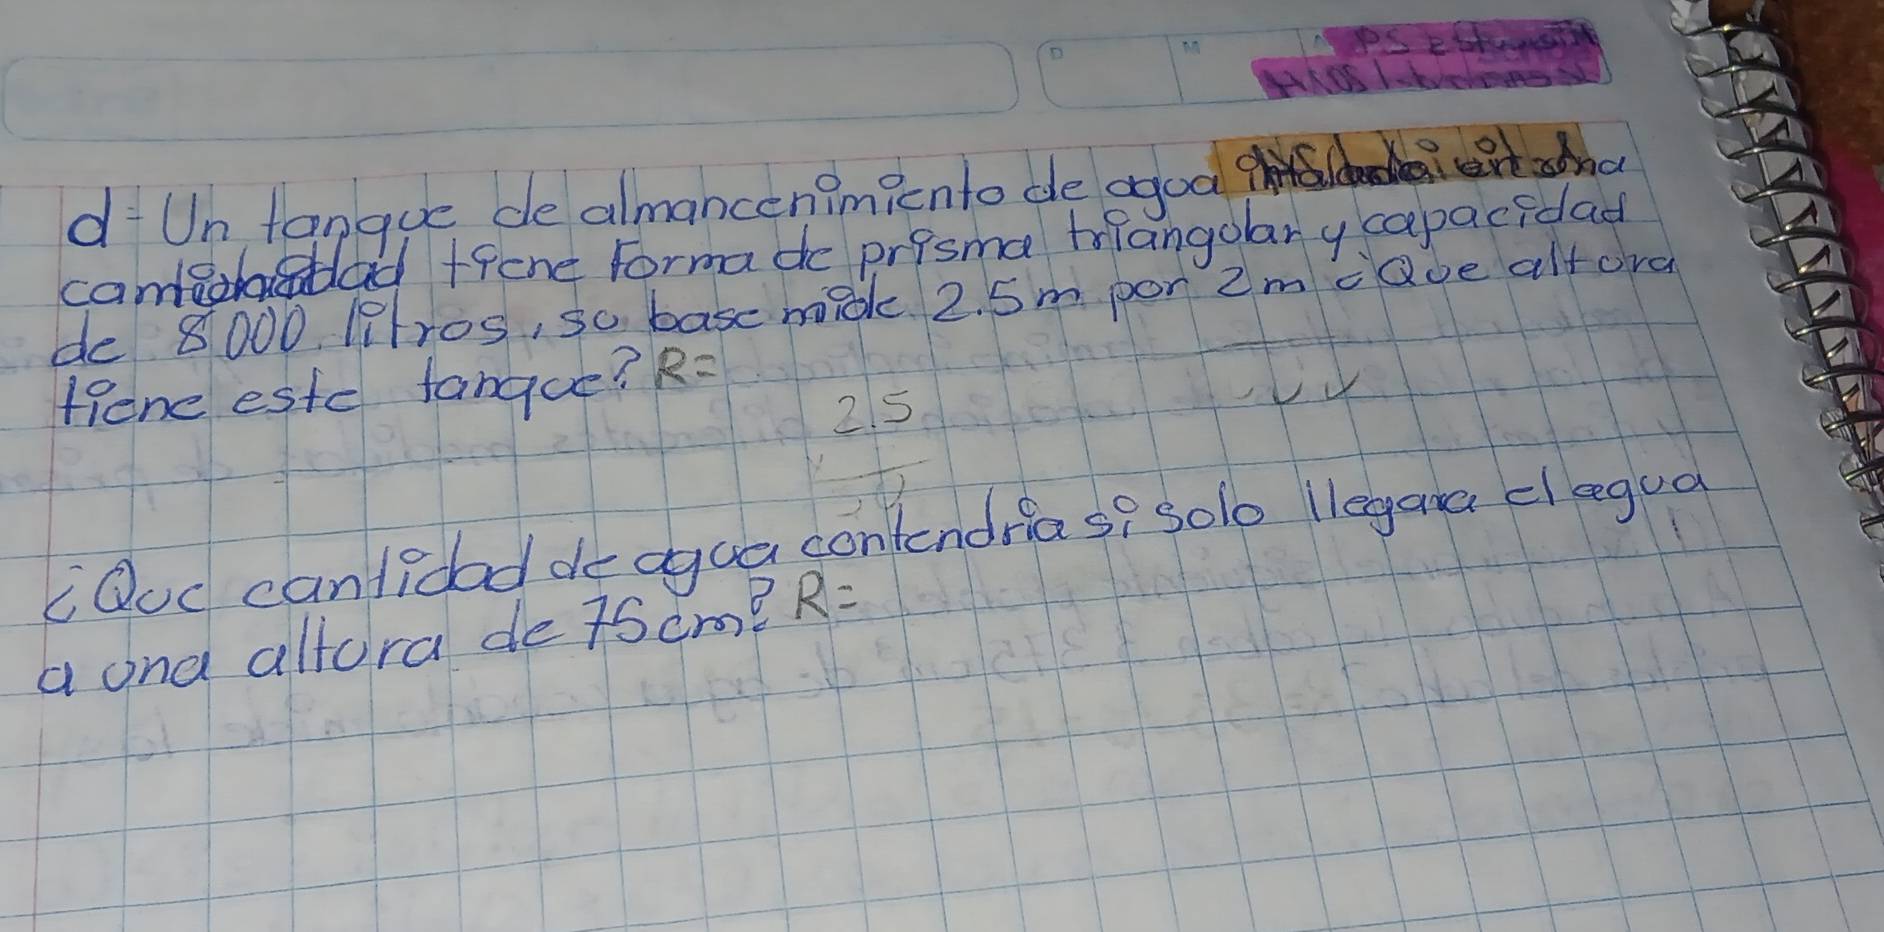 D M A
d- Un tanque de almancenimiento de agua instalada en una
tiene forma de prisma triangular y capacidad
de 8000 litros, su base mide 2.5m por 2m ¿Que altura
tiene este tanque? R=
2.5
¿Que cantidad de agua contendria si solo llegara el agua
a una altura de 75cm? R=